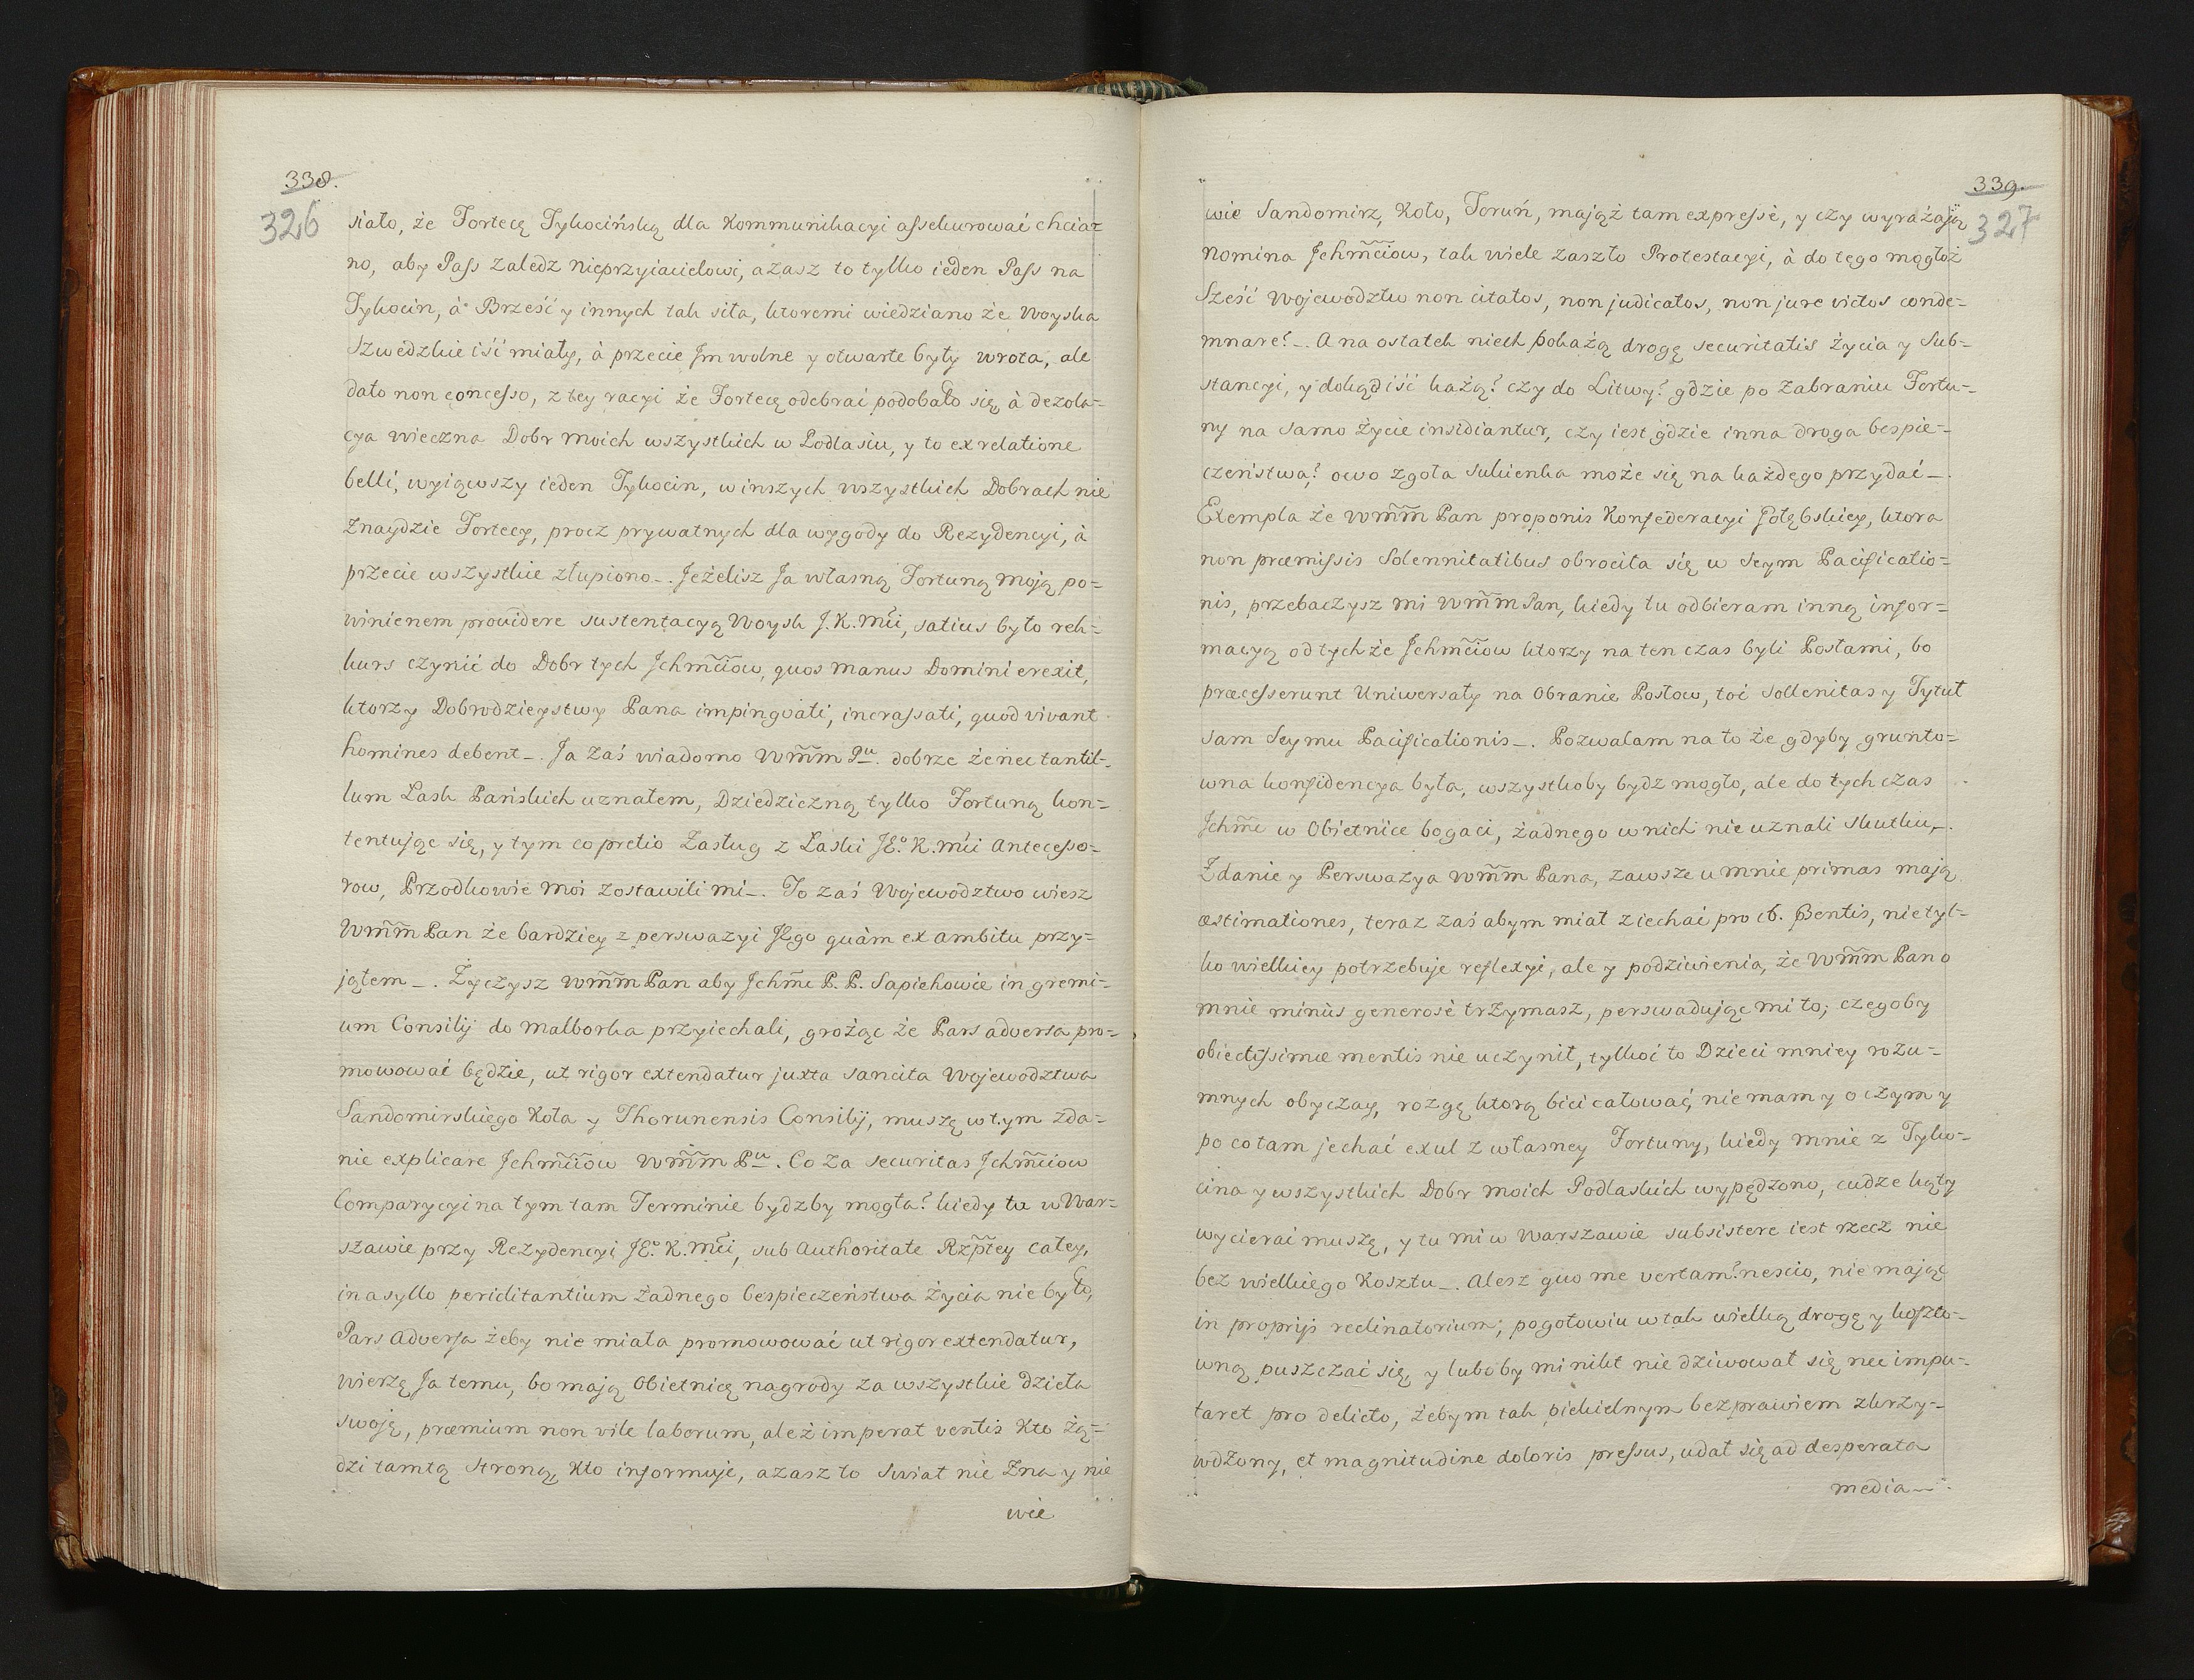 338.
326
siało, że Fortecę Tykocińską dla Kommunikacyi assekurować chcia=
no, aby Pass zaledz Nieprzyiacielowi, azasz to tylko ieden Pass na
Tykocin, à Brześć y innych tak siła, ktoremi wiedziano że Woyska
Szwedzkie iść miały, à przecie Jm wolne y otwarte były wrota, ale
dato non concesso, z tey racyi że Fortecę odebrać podobało się, à dezola=
cya wieczna Dobr moich wszystkich w Podlasiu, y to ex relatione
belli, wyiąwszy ieden Tykocin, w inszych wszystkich Dobrach nie
znaydzie Fortecy, procz prywatnych dla wygody do Rezydencyi, à
przecie wszystkie złupiono_. Jeżelisz Ja własną Fortuną moją po=
winienem providere sustentacyą Woysk J. K. Mci, satius było rek=
kurs czynić do Dobr tych Jchmciow, quos manus Domini erexit,
ktorzy Dobrodzieystwy Pana impingvati, incrassati, quod vivant
homines debent_. Ja zaś wiadomo WmmPu. dobrze że nec tantil=
lum Łask Pańskich uznałem, Dziedziczną tylko Fortuną kon=
tentując się, y tym co pretio Zasług z Łaski JEo. K. Mci Antecesso=
row, Przodkowie moi zostawili mi_. To zaś Województwo wiesz
Wmm Pan że bardziey z perswazyi JEgo quàm ex ambitu przy=
jąłem_. Życzysz Wmm Pan aby Jchme P. P. Sapiehowie in gremi=
um Consilij do Malborka przyiechali, grożąc że Pars adversa pro=
mowować będzie, ut rigor extendatur juxta sancita Województwa
Sandomirskiego Koła y Thorunensis Consilij, muszę w tym zda=
nie explicare Jchmciow Wmm Pu. Co za securitas Jchmciow
Comparycyi na tym tam Terminie bydzby mogła? kiedy tu w War=
szawie przy Rezydencyi JEo. K. Mci, sub Authoritate Rzptey całey,
in asyllo periclitantium żadnego bespieczeństwa życia nie było,
Pars Adversa żeby nie miała promowować ut rigor extendatur,
wierzę Ja temu, bo mają obietnicę nagrody za wszystkie dzieła
swoję, præmium non vile laborum, aleź imperat ventis kto żą=
dzi tamtą stroną, kto informuje, azasz to Swiat nie zna y nie
wie
339.
327
wie Sandomirz, Koło, Toruń, mająż tam expresse, y czy wyrażają
Nomina Jchmciow, tak wiele zaszło Protestacyi, à do tego mogłoż
Sześć Województw non citatos, non judicatos, non jure victos conde=
mnare?_. A na ostatek niech pokażą drogę securitatis życia y Sub=
stancyi, y dokąd iść każą? czy do Litwy? gdzie po zabraniu Fortu=
ny na samo życie insidiantur, czy iest gdzie inna droga bespie=
czeństwa? owo zgoła sukienka może się na każdego przydać_.
Exempla że Wmm Pan proponis Konfederacyi Gołębskiey, ktora
non præmissis Solennitatibus obrociła się w Seym Pacificatio=
nis, przebaczysz mi Wmm Pan, kiedy tu odbieram inną infor=
macyą od tych że Jchmciow ktorzy na ten czas byli Posłami, bo
præcesserunt Uniwersały na Obranie Posłow, toć sollenitas y Tytuł
sam Seymu Pacificationis_. Pozwalam na to że gdyby grunto=
wna konfidencya była, wszystkoby bydz mogło, ale do tych czas
Jchme w Obietnice bogaci, żadnego w nich nie uznali skutku_.
Zdanie y Perswazya Wmm Pana, zawsze u mnie primas mają
æstimationes, teraz zaś abym miał ziechać pro Bentis, nie tyl=
ko wielkiey potrzebuje reflexyi, ale y podziwienia, że Wmm Pan o
mnie minùs generosè trzymasz, perswadując mi to; czegoby
obiectissimæ mentis nie uczynił, tylkoć to Dzieci mniey rozu=
mnych obyczay, rozgę ktorą bici całować, nie mam y o czym y
po co tam jechać exul z własney Fortuny, kiedy mnie z Tyko=
cina y wszystkich Dobr moich Podlaskich wypędzono, cudze kąty
wycierać muszę, y tu mi w Warszawie subsistere iest rzecz nie
bez wielkiego Kosztu_. Alesz quo me vertam? nescio, nie mając
in proprijs reclinatorium; pogotowiu w tak wielką drogę y koszto=
wną puszczać się, y luboby mi nikt nie dziwował się nec impu=
taret pro delicto, żebym tak piekielnym bezprawiem zkrzy=
wdzony, et magnitudine doloris pressus, udał się ad desperata
media_.